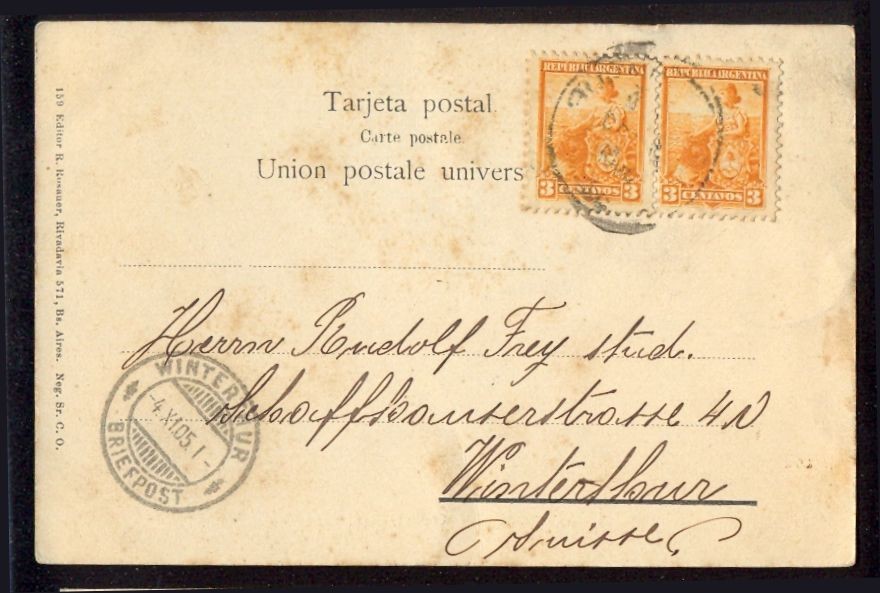 REPUBLICA ARGENTINA
REPUBLICA ARGENTINA
3 CENTAVOS 3
3 CENTAVOS 3
Tarjeta postal
Carte postale.
Union postale univers
159 Editor R. Rosauer, Rivadavia 571, Bs. Aires. Neg. Sr. C. O.
Herrn Rudolf Frey stud.
Schaffhauserstrasse 40
Winterthur
Suisse
WINTERTHUR
-4.XI.05.1-
BRIEFPOST